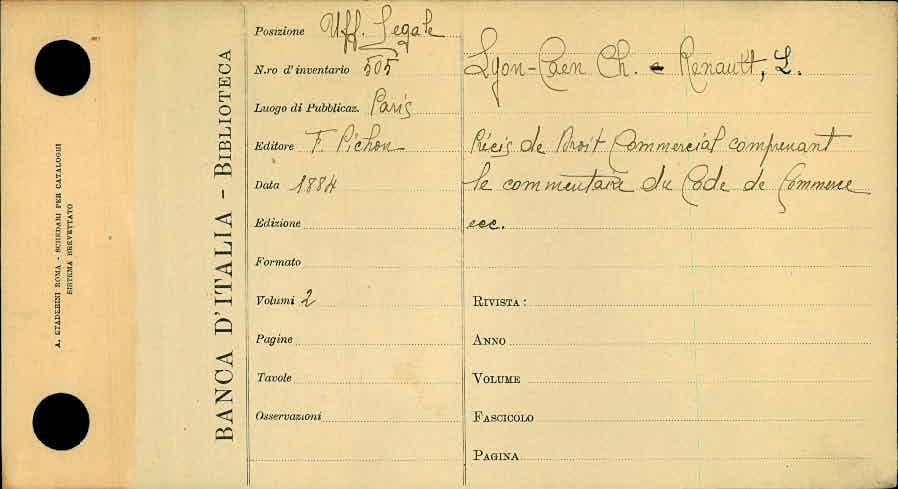 A. STADERINI ROMA - SCHEDARI PER CATALOGHI
SISTEMA BREVETTATO
BANCA D'ITALIA - BIBLIOTECA
Posizione Uff. Legale
N.ro d'inventario 505
Luogo di Pubblicaz. Paris
Editore F. Pichon
Data 1884
Edizione
Formato
Volumi 2
Pagine
Tavole
Osservazioni
Lyon-Caen Ch. e Renault, L.
Précis de Droit Commercial comprenant
le commentaire du Code de Commerce
ecc.
RIVISTA:
ANNO
VOLUME
FASCICOLO
PAGINA